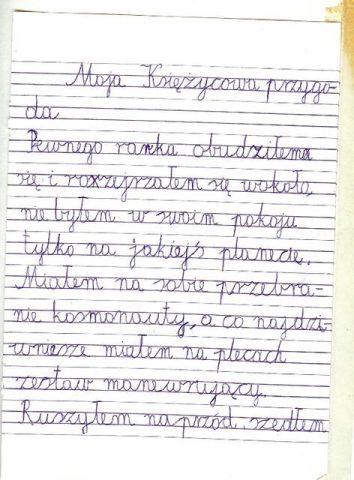 Moja Księżycowa przygo-
da
Pewnego ranka obudziłem
się i rozejrzałem się wokoło,
nie byłem w swoim pokoju
tylko na jakiejś planecie.
Miałem na sobie przebra-
nie kosmonauty, a co najdzi-
wniesze miałem na plecach
zestaw manewrujący.
Ruszyłem na przód, szedłem